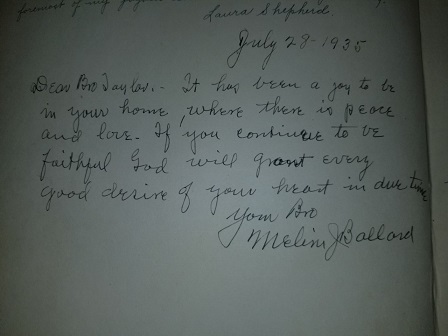 Laura Shepherd.
July 28-1935
Dear Bro Taylor.- It has been a joy to be
in your home, where there is peace
and love. If you continue to be
faithful God will grant every
good desire of your heart in due time
Your Bro
Melvin J Ballard